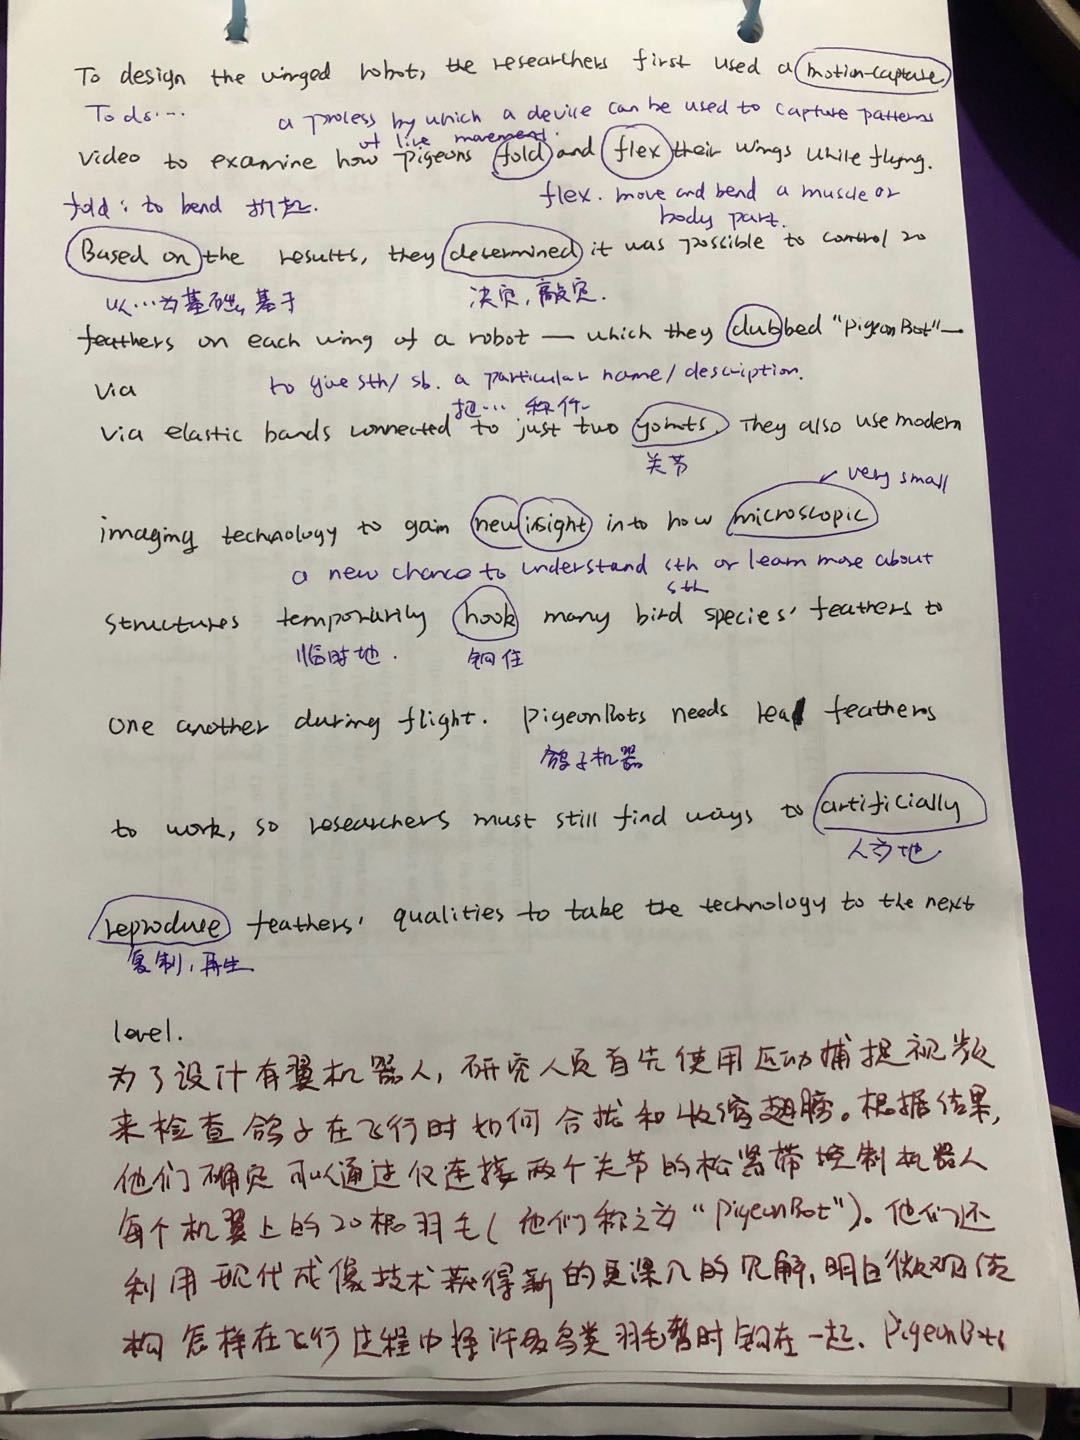 To design the winged robot, the researchers first used a motion-capture
To ds....
a process by which a device can be used to capture patterns
of live movement.
video to examine how pigeons fold and flex their wings while flying.
fold: to bend 折起.
flex. move and bend a muscle or
body part.
Based on the results, they determined it was possible to control 20
以…为基础, 基于
决定, 敲定.
feathers on each wing of a robot — which they dubbed "PigeonBot"—
via
to give sth/ sb. a particular name/ description.
把… 称作
via elastic bands connected to just two joints. They also use modern
关节
very small
imaging technology to gain new insight into how microscopic
a new chance to understand sth or learn more about
sth
structures temporarily hook many bird species' feathers to
临时地.
钩住
one another during flight. PigeonBots needs real feathers
鸽子机器
to work, so researchers must still find ways to artificially
人为地
reproduce feathers' qualities to take the technology to the next
复制, 再生
level.
为了设计有翼机器人, 研究人员首先使用运动捕捉视频
来检查鸽子在飞行时如何合拢和收缩翅膀。根据结果,
他们确定可以通过仅连接两个关节的松紧带控制机器人
每个机翼上的20根羽毛(他们称之为"PigeonBot")。他们还
利用现代成像技术获得新的更深入的见解, 明白微观结
构怎样在飞行过程中将许多鸟类羽毛暂时钩在一起. PigeonBots